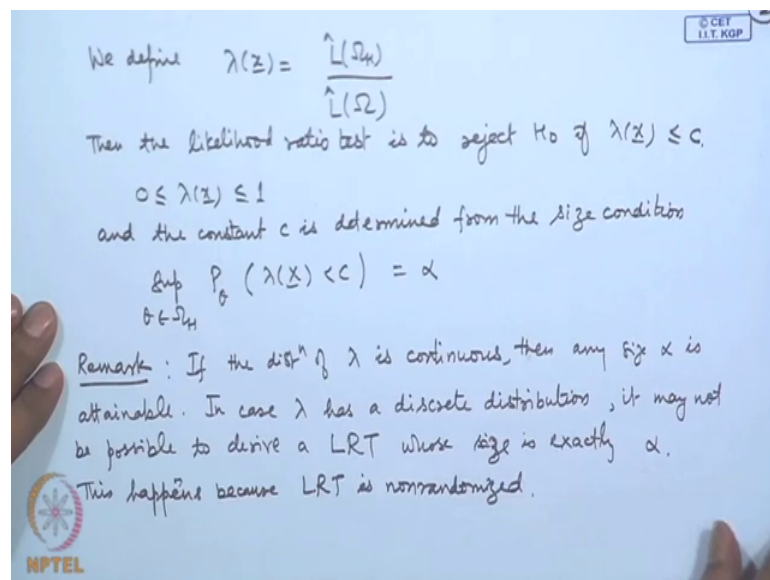 © CET
I.I.T. KGP
We define λ(x) = L̂(Ω_H) / L̂(Ω)
Then the likelihood ratio test is to reject H₀ if λ(x) ≤ c.
0 ≤ λ(x) ≤ 1
and the constant c is determined from the size condition
Sup P_θ (λ(X) < c) = α
θ ∈ Ω_H
Remark : If the distⁿ of λ is continuous, then any size α is
attainable. In case λ has a discrete distribution, it may not
be possible to derive a LRT whose size is exactly α.
This happens because LRT is nonrandomized.
NPTEL